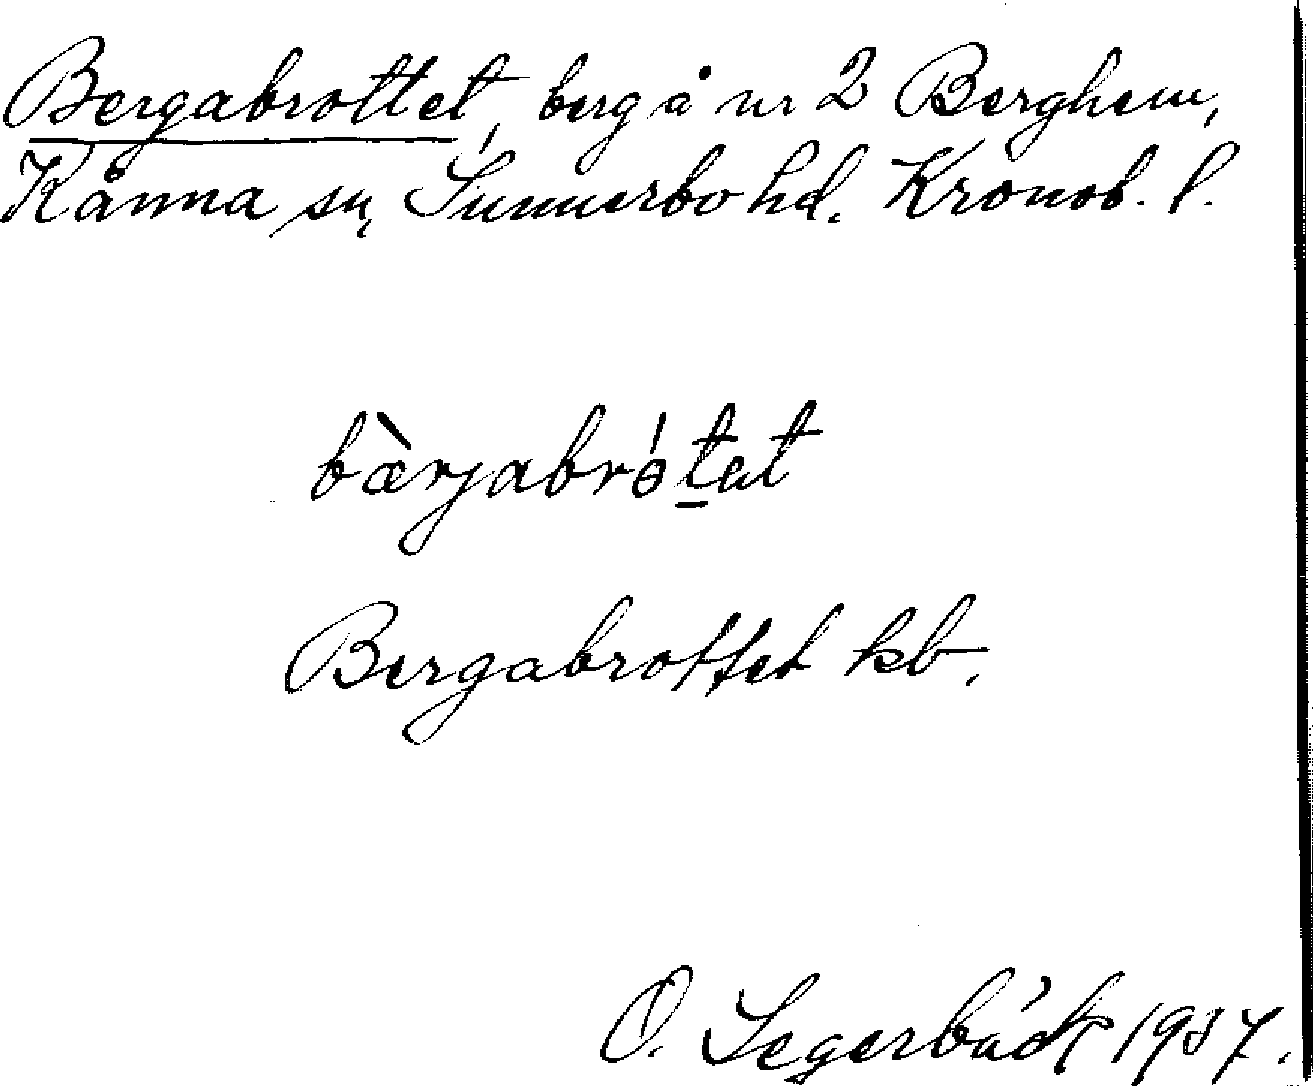 Bergabrottet, berg å nr 2 Berghem,
Kånna sn, Sunnerbo hd. Kronob. l.
bàrjabrótet
Bergabrottet kb.
O. Segerbäck 1937.